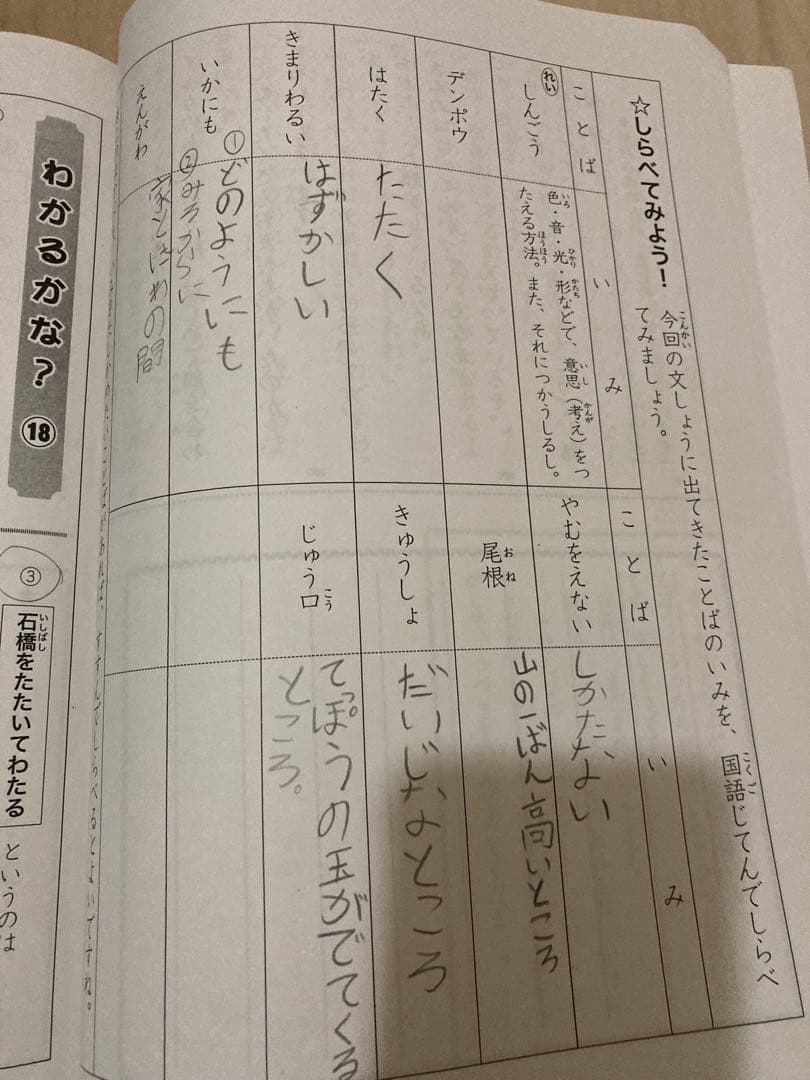 ☆しらべてみよう!
今回の文しょうに出てきたことばのいみを、国語じてんでしらべ
てみましょう。
ことば
いみ
ことば
いみ
れい
しんごう
色・音・光・形などで、意思(考え)をつ
たえる方法。また、それにつかうしるし。
やむをえない
しかたない
デンポウ
尾根
山の一ばん高いところ
はたく
たたく
きゅうしょ
だいじなところ
きまりわるい
はずかしい
じゅう口
てっぽうの玉がでてくる
ところ。
いかにも
①どのようにも
②みるからに
えんがわ
家とにわの間
すすんでしらべるとよいですね。
わかるかな? ⑱
③
石橋をたたいてわたる
というのは